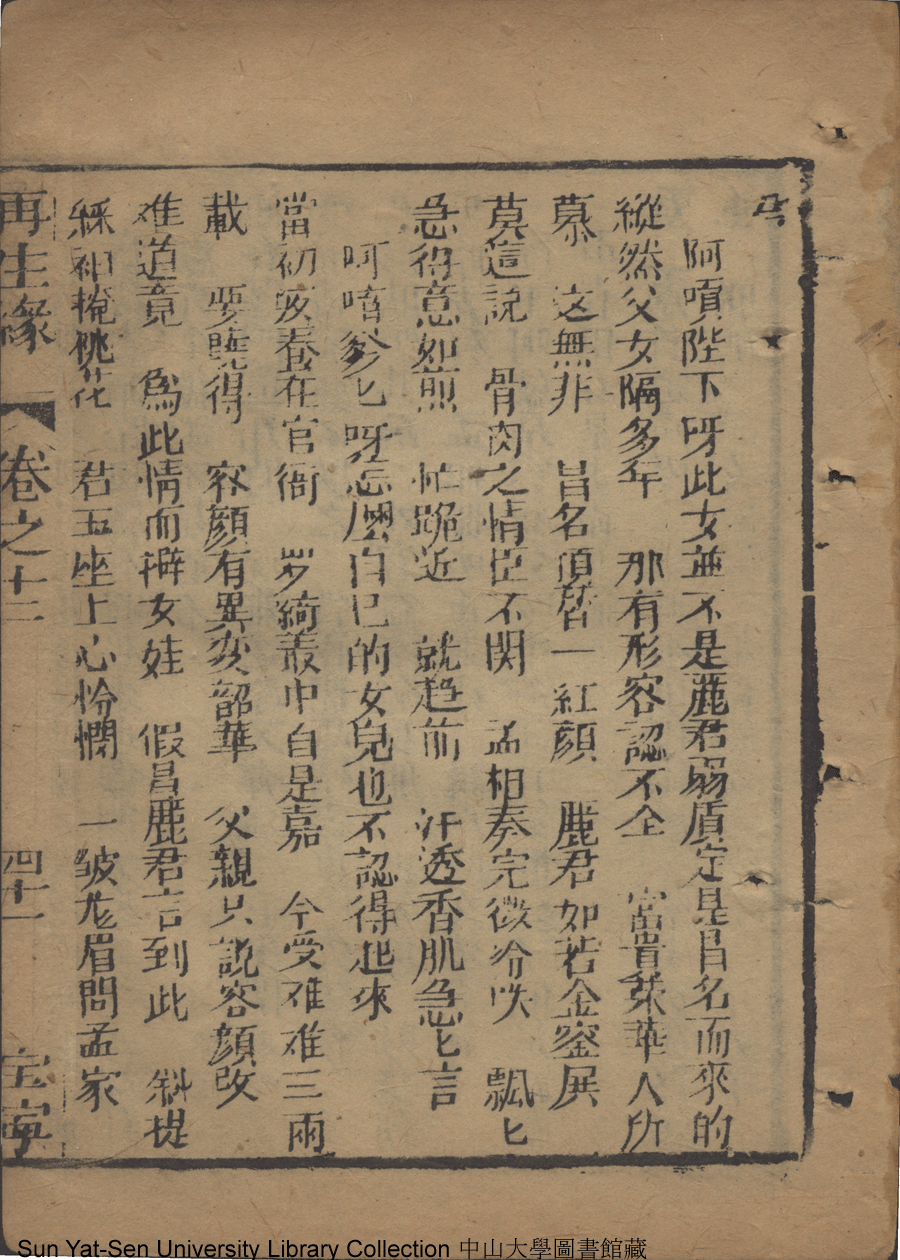 阿嘖陛下呀此女並不是麗君弱質定是冒名而來的
縱然父女隔多年 那有形容認不全 富貴荣華人所
慕 这無非 冒名頂替一紅顔 麗君如若金鑾展
莫這說 骨肉之情臣不関 孟相奏完微冷咲 飄匕
急得意如煎 忙跪近 就趋前 汗透香肌急匕言
呵唷爹匕呀怎麼自已的女兒也不認得起來
當初安養在官衙 罗綺叢中自是嘉 今受难难三兩
載 要曉得 容顔有異变韶華 父親只說容顔改
难道竟 爲此情而辦女娃 假冒麗君言到此 斜提
綵袖掩桃花 君王座上心怜憫 一皱尨眉問孟家
再生緣 卷之十二 四十一 宝寧
Sun Yat-Sen University Library Collection 中山大學圖書館藏